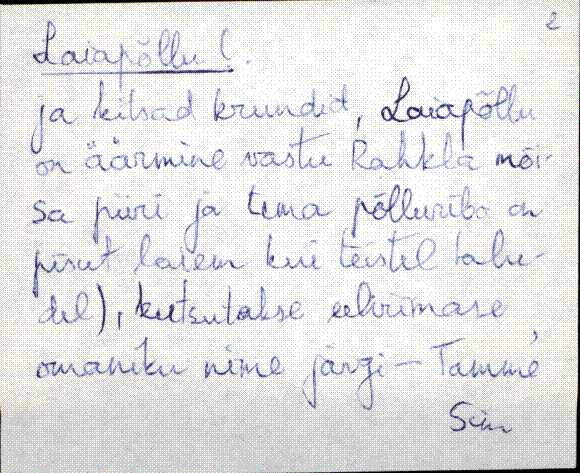 2
Laiapõllu (.
ja kitsad krundid, Laiapõllu
on äärmine vastu Rahkla mõi-
sa piiri ja tema põlluriba on
pisut laiem kui teistel talu-
del), kutsutakse eelviimase
omaniku nime järgi – Tamme